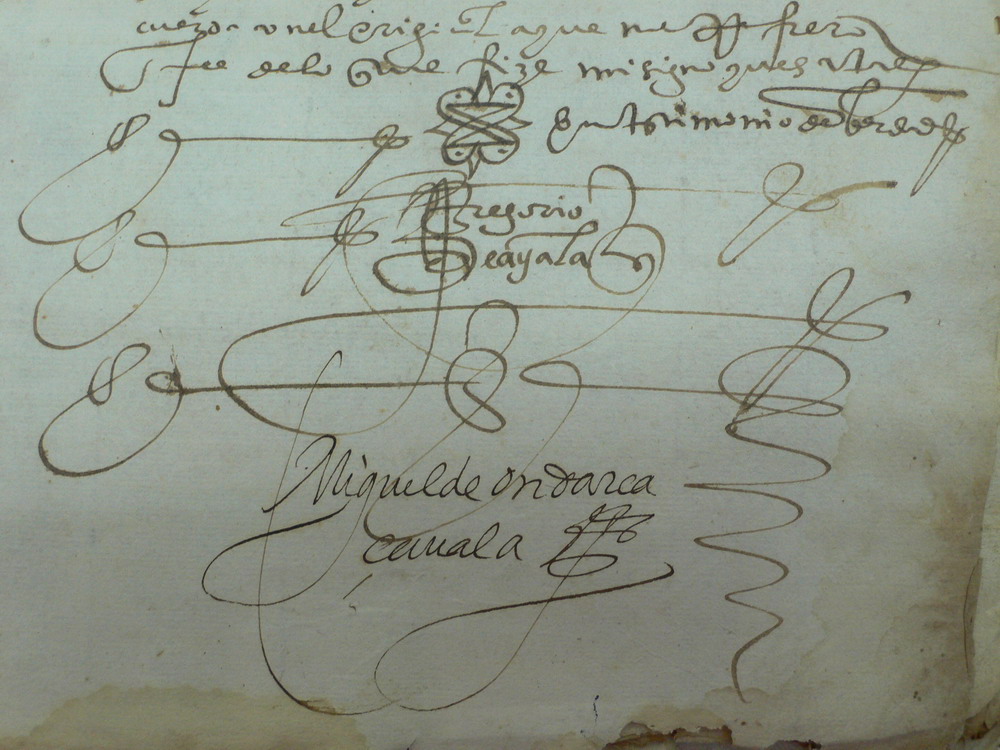 cuerdo con el origi al que me Refiero
fee de lo que fize mi signo ques atal
en testimonio de verdad
Gregorio
de ayala
Miguel de ondarca
cauala